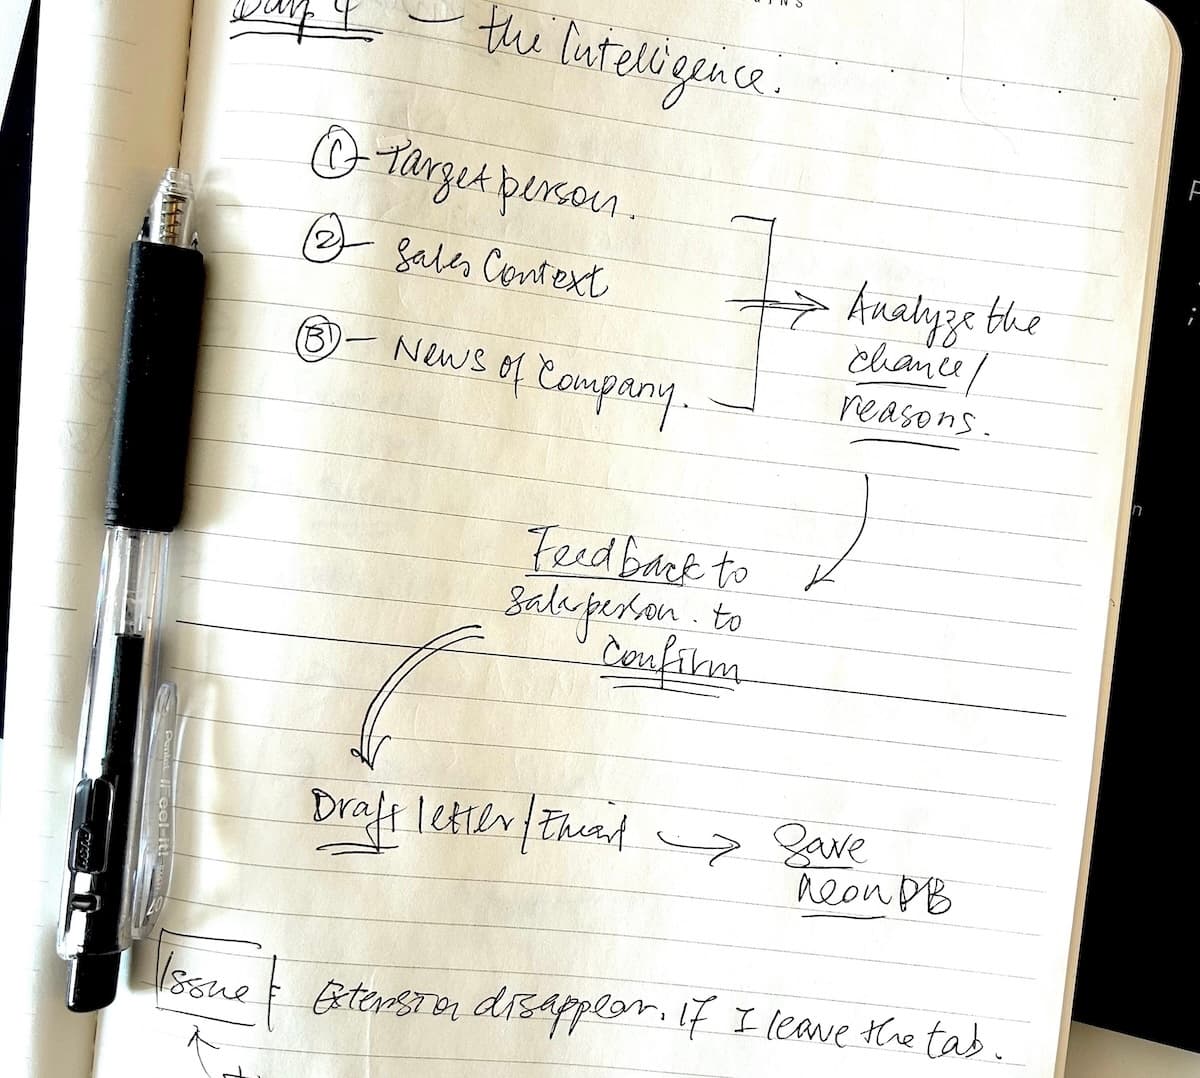 Day 4 — the Intelligence.
① - Target person.
② - Sales Context
③ - News of Company.
→ Analyze the
chance/
reasons.
Feedback to
salesperson. to
Confirm
Draft letter/Email → Save
neon DB
Issue : Extension disappear. If I leave the tab.